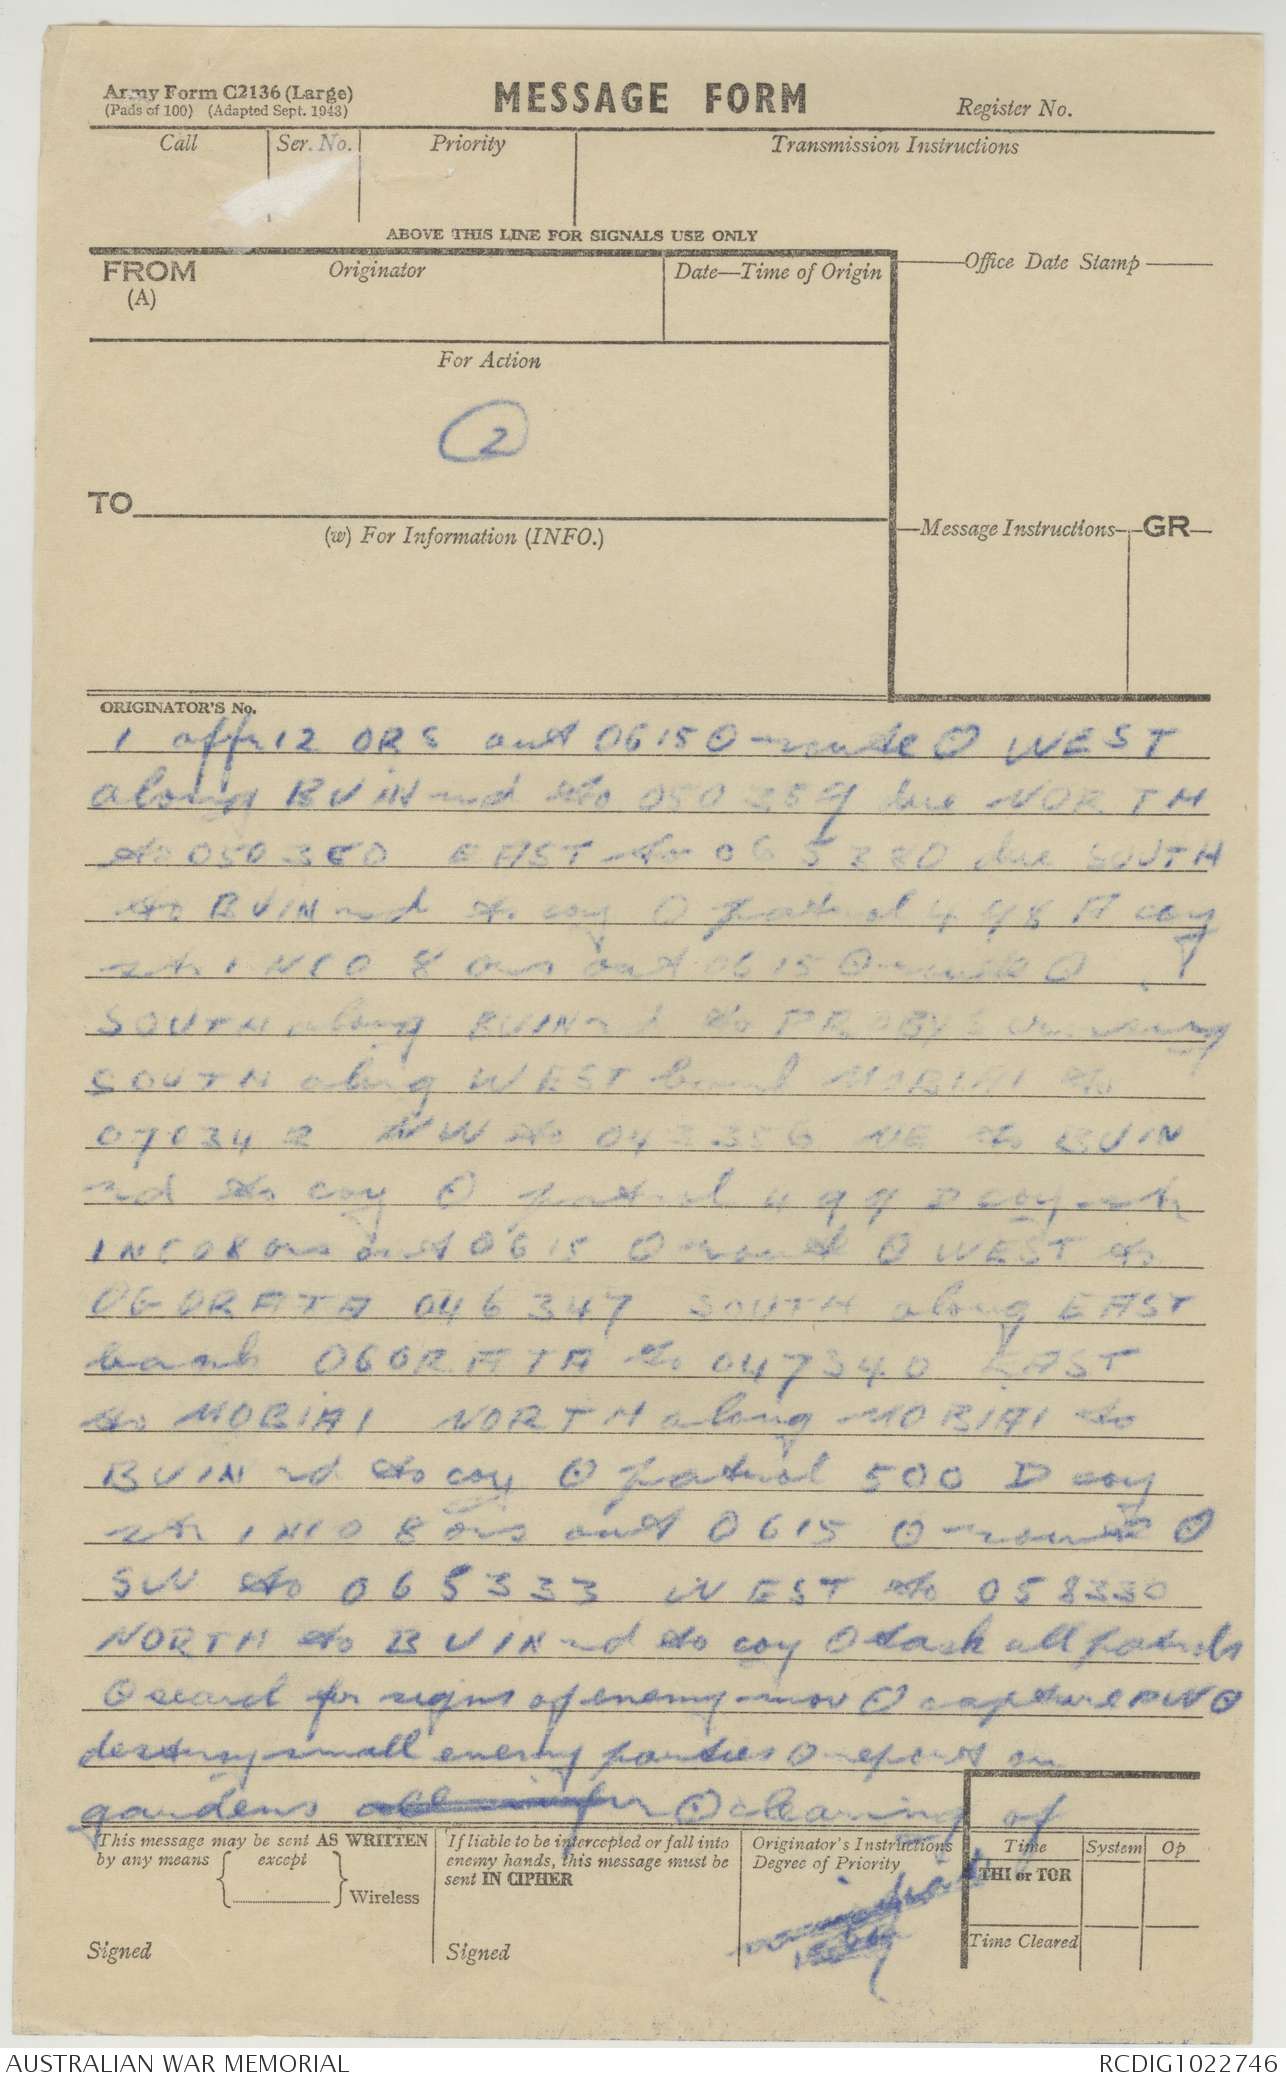 Army Form C2136 (Large)
(Pads of 100) (Adapted Sept. 1943)
MESSAGE FORM
Register No.
Call
Ser. No.
Priority
Transmission Instructions
ABOVE THIS LINE FOR SIGNALS USE ONLY
FROM
(A)
Originator
Date—Time of Origin
Office Date Stamp
For Action
2
TO
(w) For Information (INFO.)
Message Instructions
GR
ORIGINATOR'S No.
1 offr 12 ORS out 0615 O route O WEST
along BUIN rd to 050359 due NORTH
to 050380 EAST to 065380 due SOUTH
to BUIN rd to coy O patrol 498 A coy
str 1 NCO 8 ors out 0615 O route O
SOUTH along BUIN rd to PROBYS
SOUTH along WEST MOBIAI to
070342 NW to 043356 NE to BUIN
rd to coy O patrol 499 coy str
1 NCO 8 ors out 0615 O route O WEST to
OGORATA 046347 SOUTH along EAST
bank OGORATA to 047340 EAST
to MOBIAI NORTH along MOBIAI to
BUIN rd to coy O patrol 500 D coy
str 1 NCO 8 ors out 0615 O route O
SW to 065333 WEST to 058330
NORTH to BUIN rd to coy O task all patrols
O search for signs of enemy mov O capture PW O
destroy small enemy parties O report on
gardens all O clearing of
This message may be sent AS WRITTEN
by any means
except
Wireless
Signed
If liable to be intercepted or fall into
enemy hands, this message must be
sent IN CIPHER
Signed
Originator's Instructions
Degree of Priority
Time
System
Op
THI or TOR
Time Cleared
AUSTRALIAN WAR MEMORIAL
RCDIG1022746